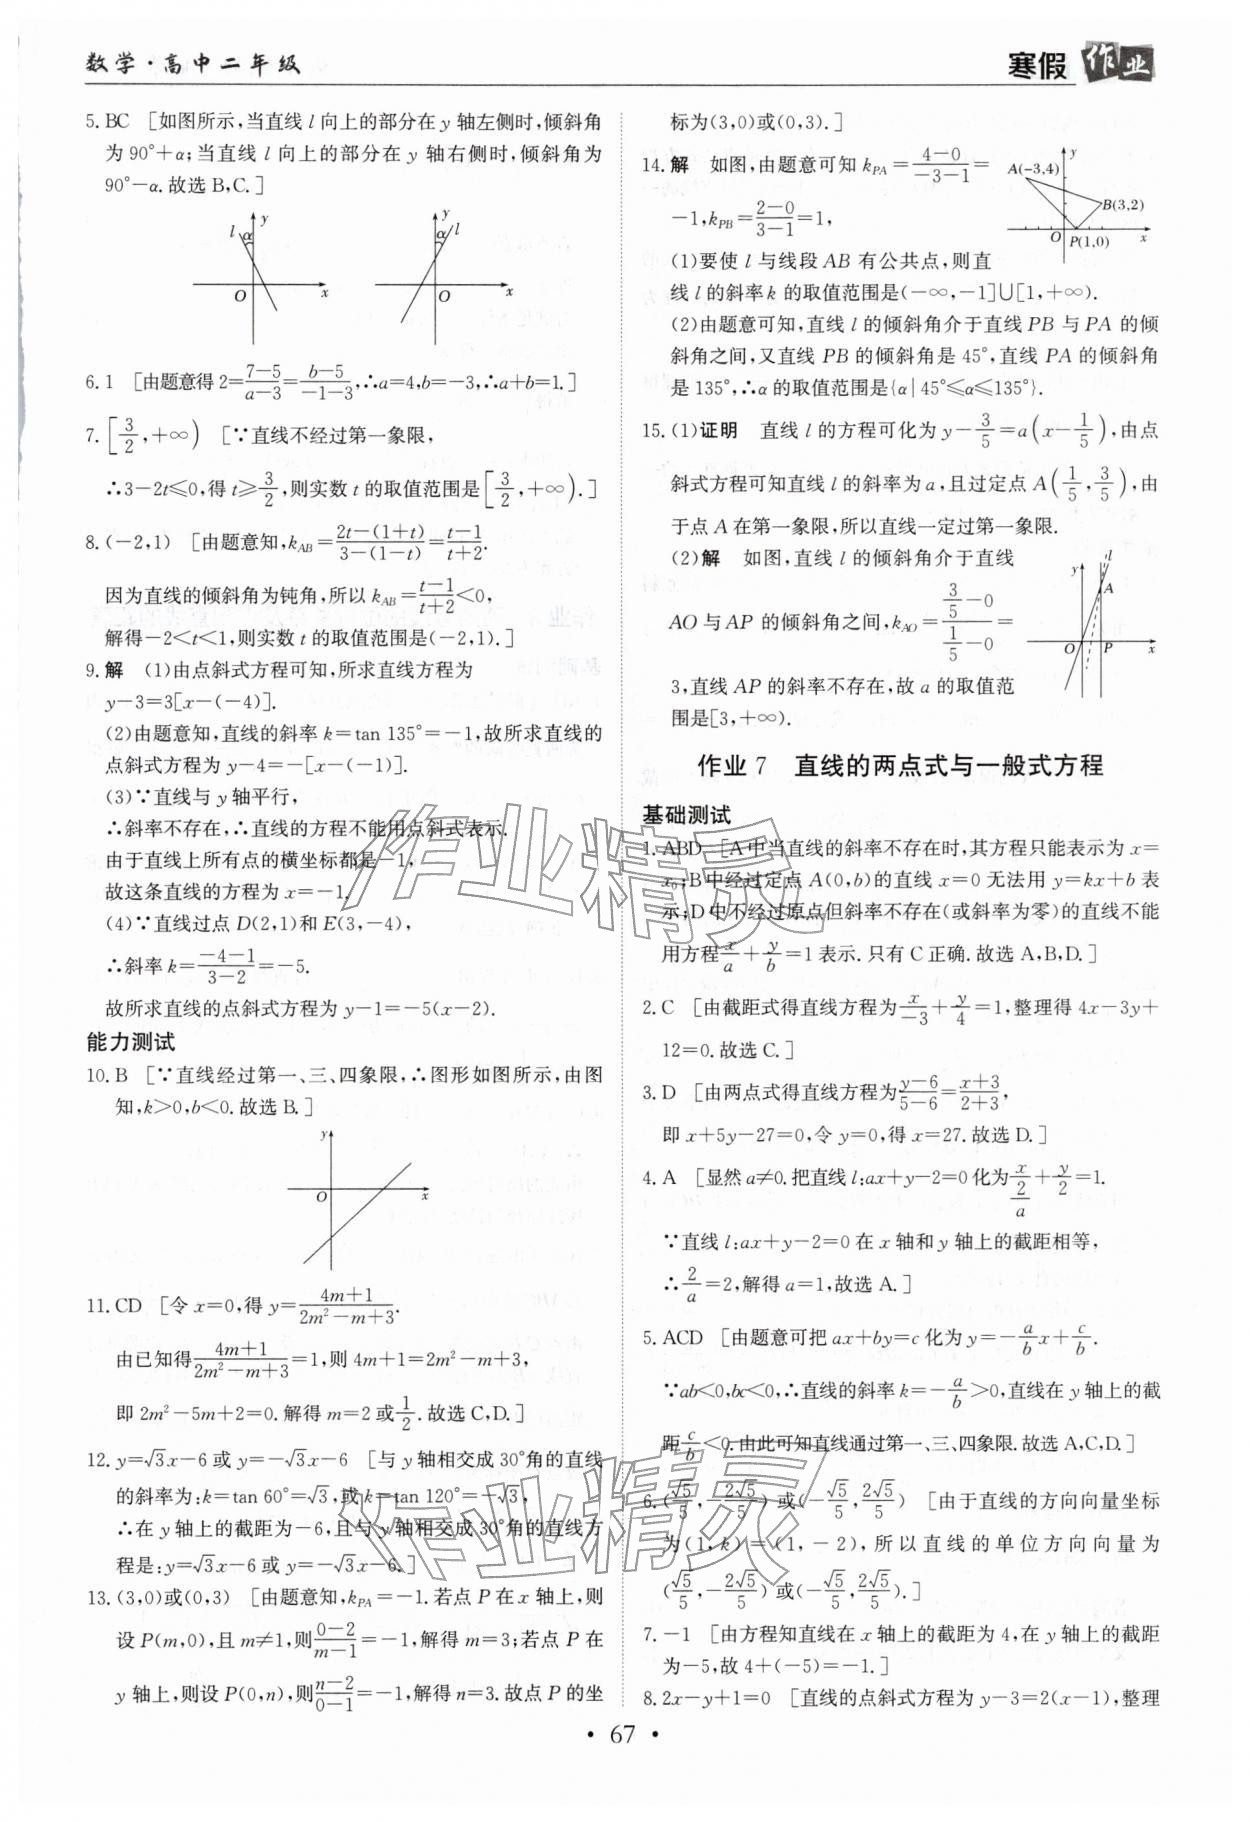 数学·高中二年级
寒假作业
5. BC [如图所示,当直线 l 向上的部分在 y 轴左侧时,倾斜角
为 90°+α;当直线 l 向上的部分在 y 轴右侧时,倾斜角为
90°-α.故选 B,C.]
l α y O x
y α l O x
6. 1 [由题意得 2=\frac{7-5}{a-3}=\frac{b-5}{-1-3},∴a=4,b=-3,∴a+b=1.]
7. [\frac{3}{2},+∞) [∵直线不经过第一象限,
∴3-2t≤0,得 t≥\frac{3}{2},则实数 t 的取值范围是[\frac{3}{2},+∞).]
8. (-2,1) [由题意知,k_{AB}=\frac{2t-(1+t)}{3-(1-t)}=\frac{t-1}{t+2}.
因为直线的倾斜角为钝角,所以 k_{AB}=\frac{t-1}{t+2}<0,
解得-2<t<1,则实数 t 的取值范围是(-2,1).]
9. 解 (1)由点斜式方程可知,所求直线方程为
y-3=3[x-(-4)].
(2)由题意知,直线的斜率 k=tan 135°=-1,故所求直线的
点斜式方程为 y-4=-[x-(-1)].
(3)∵直线与 y 轴平行,
∴斜率不存在,∴直线的方程不能用点斜式表示.
由于直线上所有点的横坐标都是-1,
故这条直线的方程为 x=-1.
(4)∵直线过点 D(2,1)和 E(3,-4),
∴斜率 k=\frac{-4-1}{3-2}=-5.
故所求直线的点斜式方程为 y-1=-5(x-2).
能力测试
10. B [∵直线经过第一、三、四象限,∴图形如图所示,由图
知,k>0,b<0.故选 B.]
y O x
11. CD [令 x=0,得 y=\frac{4m+1}{2m²-m+3}.
由已知得\frac{4m+1}{2m²-m+3}=1,则 4m+1=2m²-m+3,
即 2m²-5m+2=0.解得 m=2 或\frac{1}{2}.故选 C,D.]
12. y=√3x-6 或 y=-√3x-6 [与 y 轴相交成 30°角的直线
的斜率为:k=tan 60°=√3,或 k=tan 120°=-√3,
∴在 y 轴上的截距为-6,且与 y 轴相交成 30°角的直线方
程是:y=√3x-6 或 y=-√3x-6.]
13. (3,0)或(0,3) [由题意知,k_{PA}=-1.若点 P 在 x 轴上,则
设 P(m,0),且 m≠1,则\frac{0-2}{m-1}=-1,解得 m=3;若点 P 在
y 轴上,则设 P(0,n),则\frac{n-2}{0-1}=-1,解得 n=3.故点 P 的坐
标为(3,0)或(0,3).]
14. 解 如图,由题意可知 k_{PA}=\frac{4-0}{-3-1}=
-1,k_{PB}=\frac{2-0}{3-1}=1,
A(-3,4) y B(3,2) O P(1,0) x
(1)要使 l 与线段 AB 有公共点,则直
线 l 的斜率 k 的取值范围是(-∞,-1]∪[1,+∞).
(2)由题意可知,直线 l 的倾斜角介于直线 PB 与 PA 的倾
斜角之间,又直线 PB 的倾斜角是 45°,直线 PA 的倾斜角
是 135°,∴α 的取值范围是{α|45°≤α≤135°}.
15. (1)证明 直线 l 的方程可化为 y-\frac{3}{5}=a(x-\frac{1}{5}),由点
斜式方程可知直线 l 的斜率为 a,且过定点 A(\frac{1}{5},\frac{3}{5}),由
于点 A 在第一象限,所以直线一定过第一象限.
(2)解 如图,直线 l 的倾斜角介于直线
AO 与 AP 的倾斜角之间,k_{AO}=\frac{\frac{3}{5}-0}{\frac{1}{5}-0}=
y l A O P x
3,直线 AP 的斜率不存在,故 a 的取值范
围是[3,+∞).
作业 7 直线的两点式与一般式方程
基础测试
1. ABD [A 中当直线的斜率不存在时,其方程只能表示为 x=
x₀;B 中经过定点 A(0,b)的直线 x=0 无法用 y=kx+b 表
示;D 中不经过原点但斜率不存在(或斜率为零)的直线不能
用方程\frac{x}{a}+\frac{y}{b}=1 表示.只有 C 正确.故选 A,B,D.]
2. C [由截距式得直线方程为\frac{x}{-3}+\frac{y}{4}=1,整理得 4x-3y+
12=0.故选 C.]
3. D [由两点式得直线方程为\frac{y-6}{5-6}=\frac{x+3}{2+3},
即 x+5y-27=0,令 y=0,得 x=27.故选 D.]
4. A [显然 a≠0.把直线 l:ax+y-2=0 化为\frac{x}{\frac{2}{a}}+\frac{y}{2}=1.
∵直线 l:ax+y-2=0 在 x 轴和 y 轴上的截距相等,
∴\frac{2}{a}=2,解得 a=1,故选 A.]
5. ACD [由题意可把 ax+by=c 化为 y=-\frac{a}{b}x+\frac{c}{b}.
∵ab<0,bc<0,∴直线的斜率 k=-\frac{a}{b}>0,直线在 y 轴上的截
距\frac{c}{b}<0.由此可知直线通过第一、三、四象限.故选 A,C,D.]
6. (\frac{√5}{5},-\frac{2√5}{5})或(-\frac{√5}{5},\frac{2√5}{5}) [由于直线的方向向量坐标
为(1,k)=(1,-2),所以直线的单位方向向量为
(\frac{√5}{5},-\frac{2√5}{5})或(-\frac{√5}{5},\frac{2√5}{5}).]
7. -1 [由方程知直线在 x 轴上的截距为 4,在 y 轴上的截距
为-5,故 4+(-5)=-1.]
8. 2x-y+1=0 [直线的点斜式方程为 y-3=2(x-1),整理
• 67 •
作业精灵
作业精灵